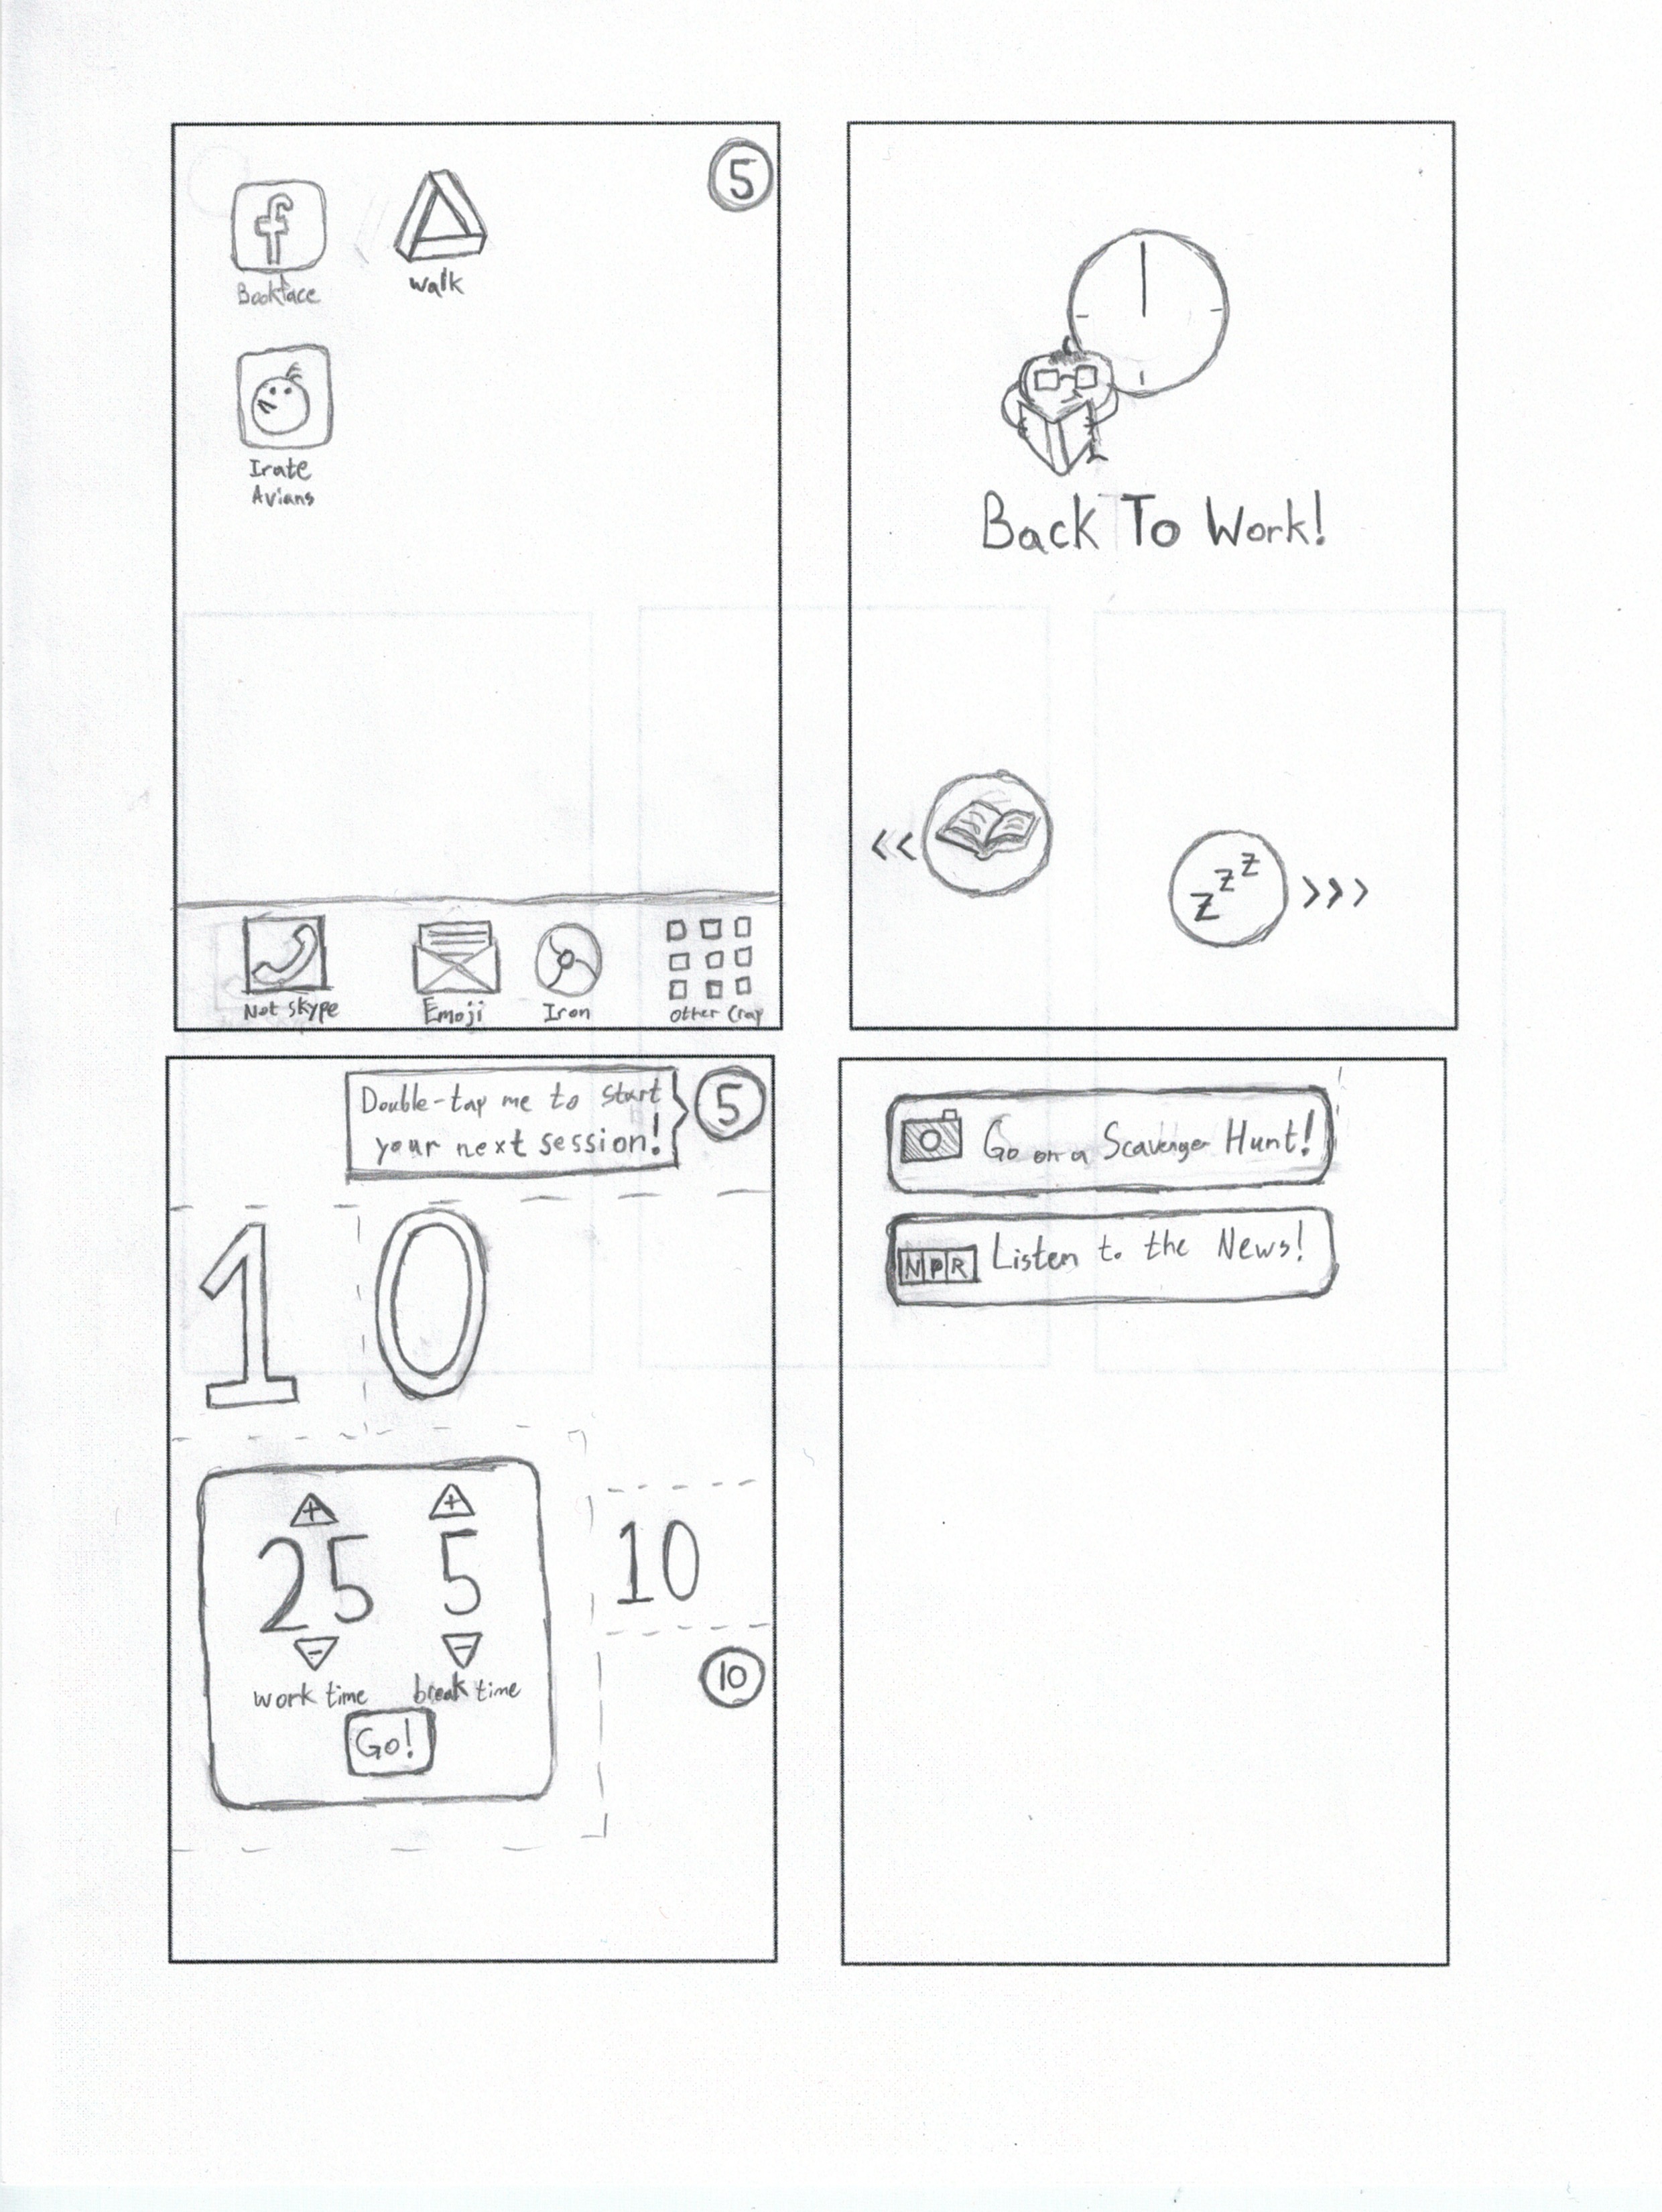 5
f
Bookface
walk
Irate
Avians
Not Skype
Emoji
Iron
Other Crap
Back To Work!
<<
z z z >>>
Double-tap me to start
your next session!
5
10
+ +
25 5
- -
work time break time
Go!
10
10
Go on a Scavenger Hunt!
NPR Listen to the News!